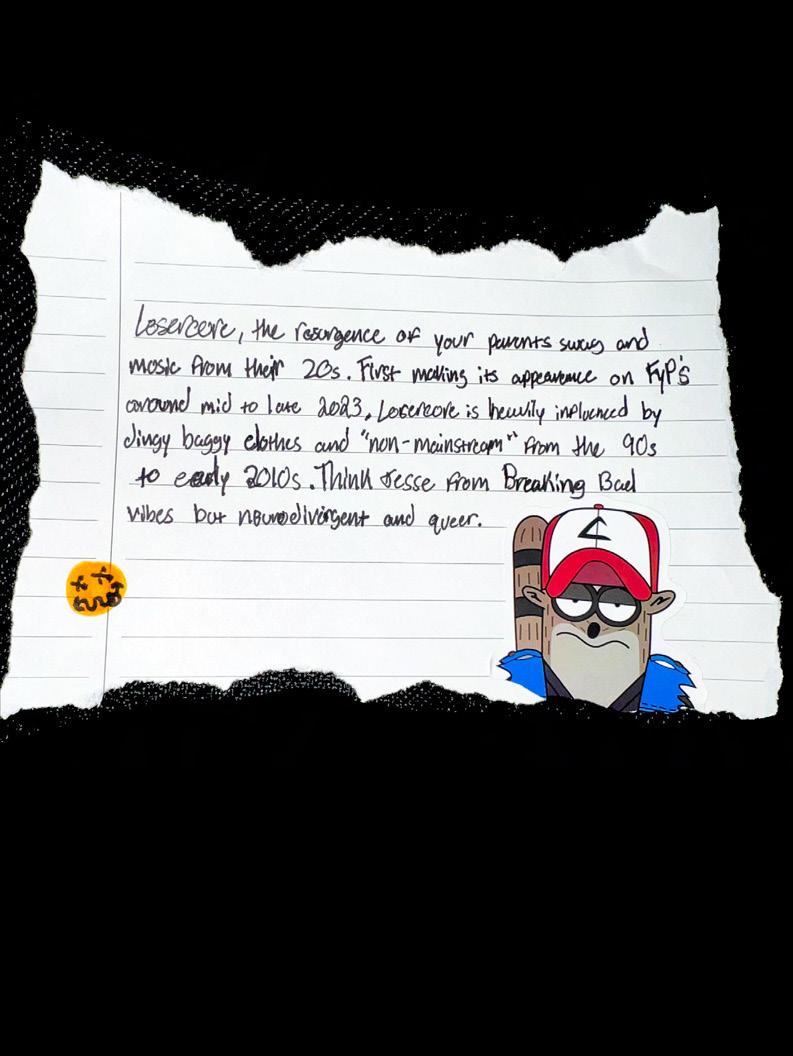 Losercore, the resurgence of your parents swag and
music from their 20s. First making its appearance on FyP's
around mid to late 2023, Losercore is heavily influenced by
dingy baggy clothes and "non-mainstream" from the 90s
to early 2010s. Think Jesse from Breaking Bad
vibes but neurodivergent and queer.